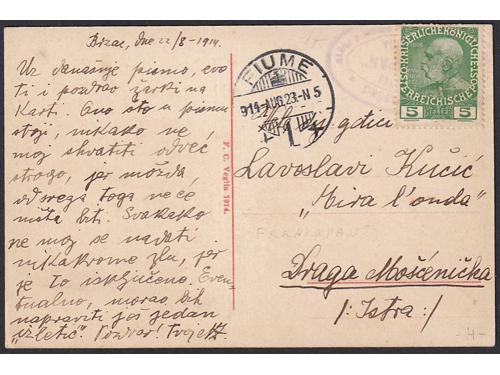 Brzac, dne 22/8 - 1914.
Uz današnje pismo, evo
ti i pozdrav zašti na
Karti. Ono što u pismu
stoji, nikako ne
moj shvatiti odveć
strogo, jer možda
od svega toga neće
ništa biti. Svakako
ne moj se nadati
nikakvome zlu, jer
je to isključeno. Even-
tualno, morao bih
napraviti još jedan
"izletić". Pozdrav! Tvoj
F. C. Veglia 1914.
FIUME
914 AUG. 23 - N 5
KAISERLICHE KÖNIGLICHE
ÖSTERREICHISCHE POST
5 HELLER 5
gdici
Lavoslavi Kučić
„Mira l'onda"
FRANKOPANT
Draga Mošćenička
/: Istra :/
-4-